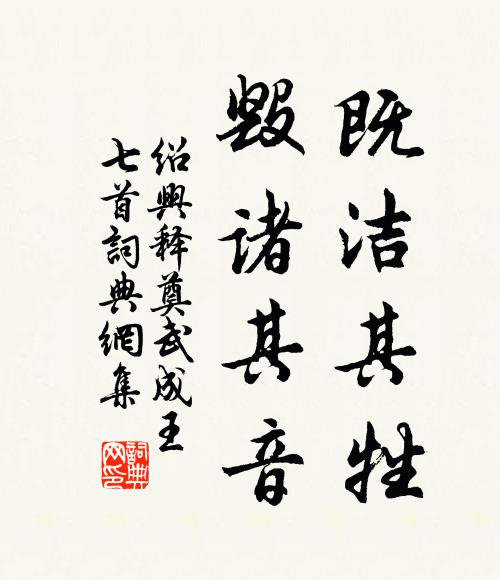 既洁其牲
毁诸其音
绍興释奠武成王
七首詞典網集
詞典网印